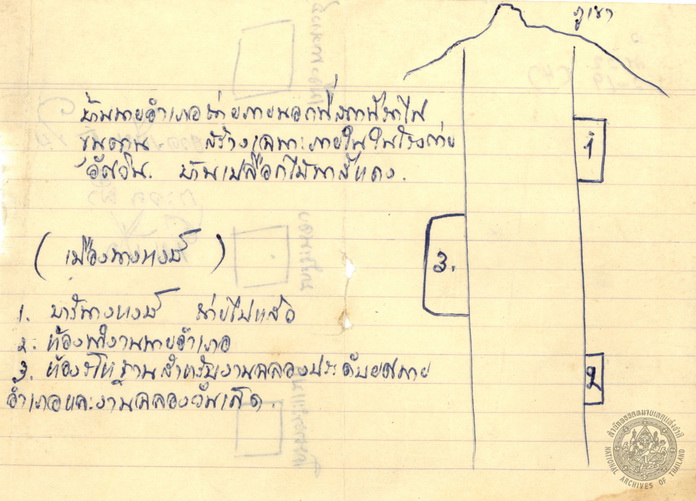 ภูเขา
บ้านนายอำเภอถ่ายภายนอกที่สถานีรถไฟ
ขุนตาน สร้างเฉพาะภายในในโรงถ่าย
อัศวิน. บ้านเปลือกไม้ทาสีแดง.
1
3.
2
(เมืองทางหงษ์)
1. บาร์ทางหงษ์ ถ่ายไปแล้ว
2. ห้องทำงานนายอำเภอ
3. ห้องรโหฐานสำหรับงานฉลองประดับยศนาย
อำเภอและงานฉลองวันเกิด.
สำนักหอจดหมายเหตุแห่งชาติ
NATIONAL ARCHIVES OF THAILAND